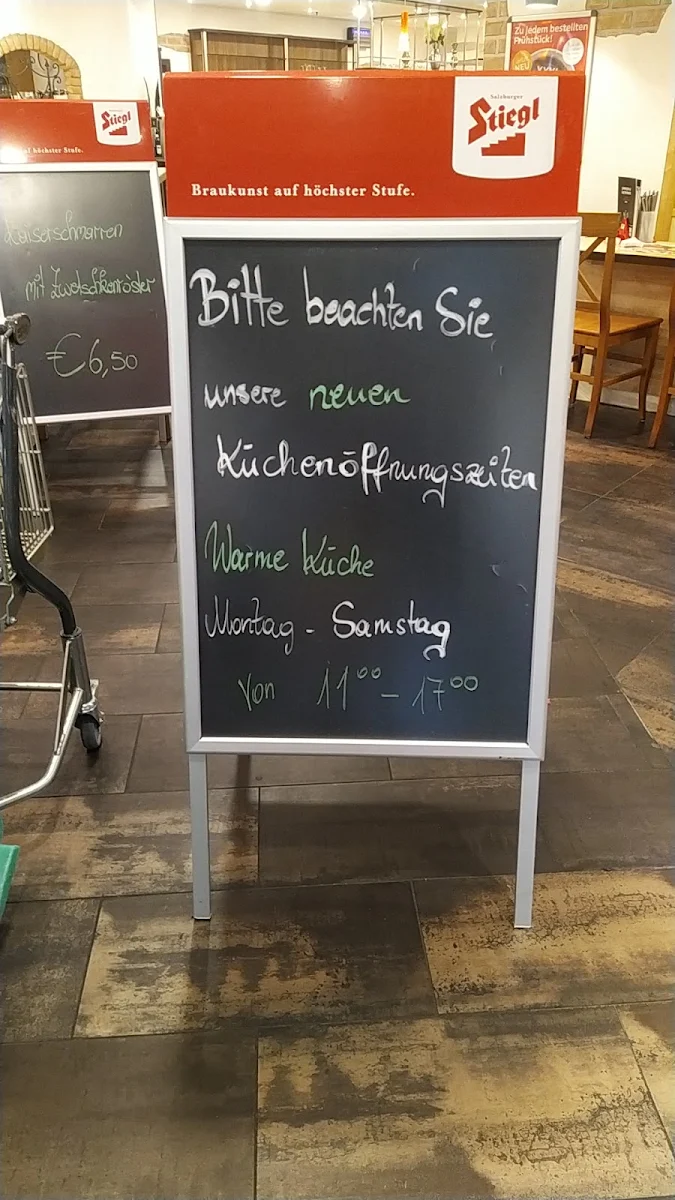 Zu jedem bestellten
Frühstück!
Salzburger
Stiegl
Braukunst auf höchster Stufe.
Bitte beachten Sie
unsere neuen
Küchenöffnungszeiten
Warme Küche
Montag - Samstag
von 11⁰⁰ - 17⁰⁰
Stiegl
auf höchster Stufe.
Kaiserschmarren
mit Zwetschkenröster
€6,50